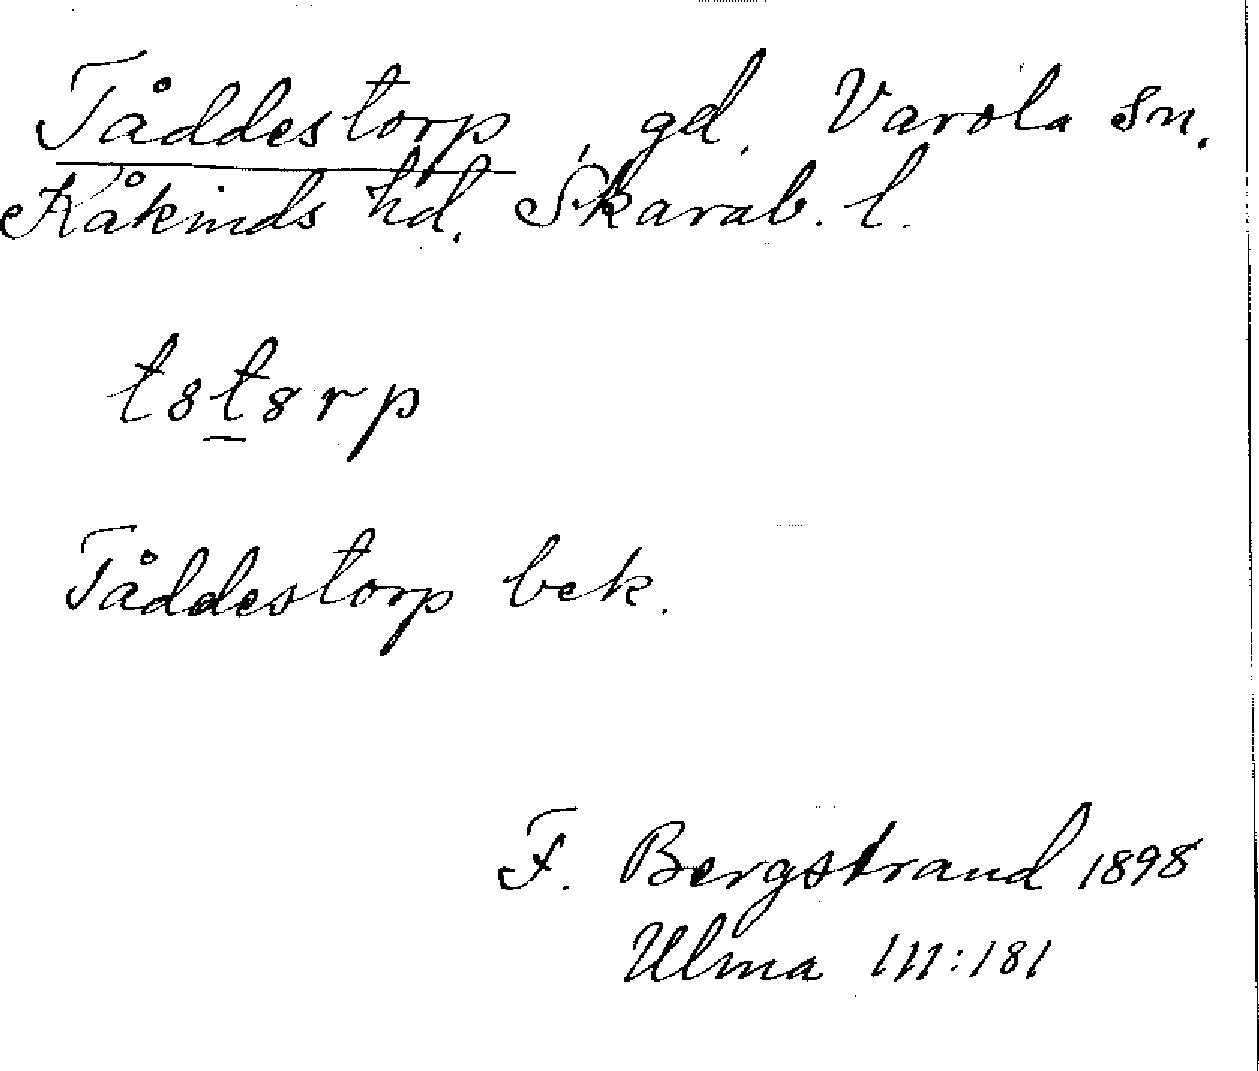 Tåddestorp, gd, Varola sn.
Kåkinds hd. Skarab. l.
t8t8rp
Tåddestorp bek.
F. Bergstrand 1898
Ulma 111:181